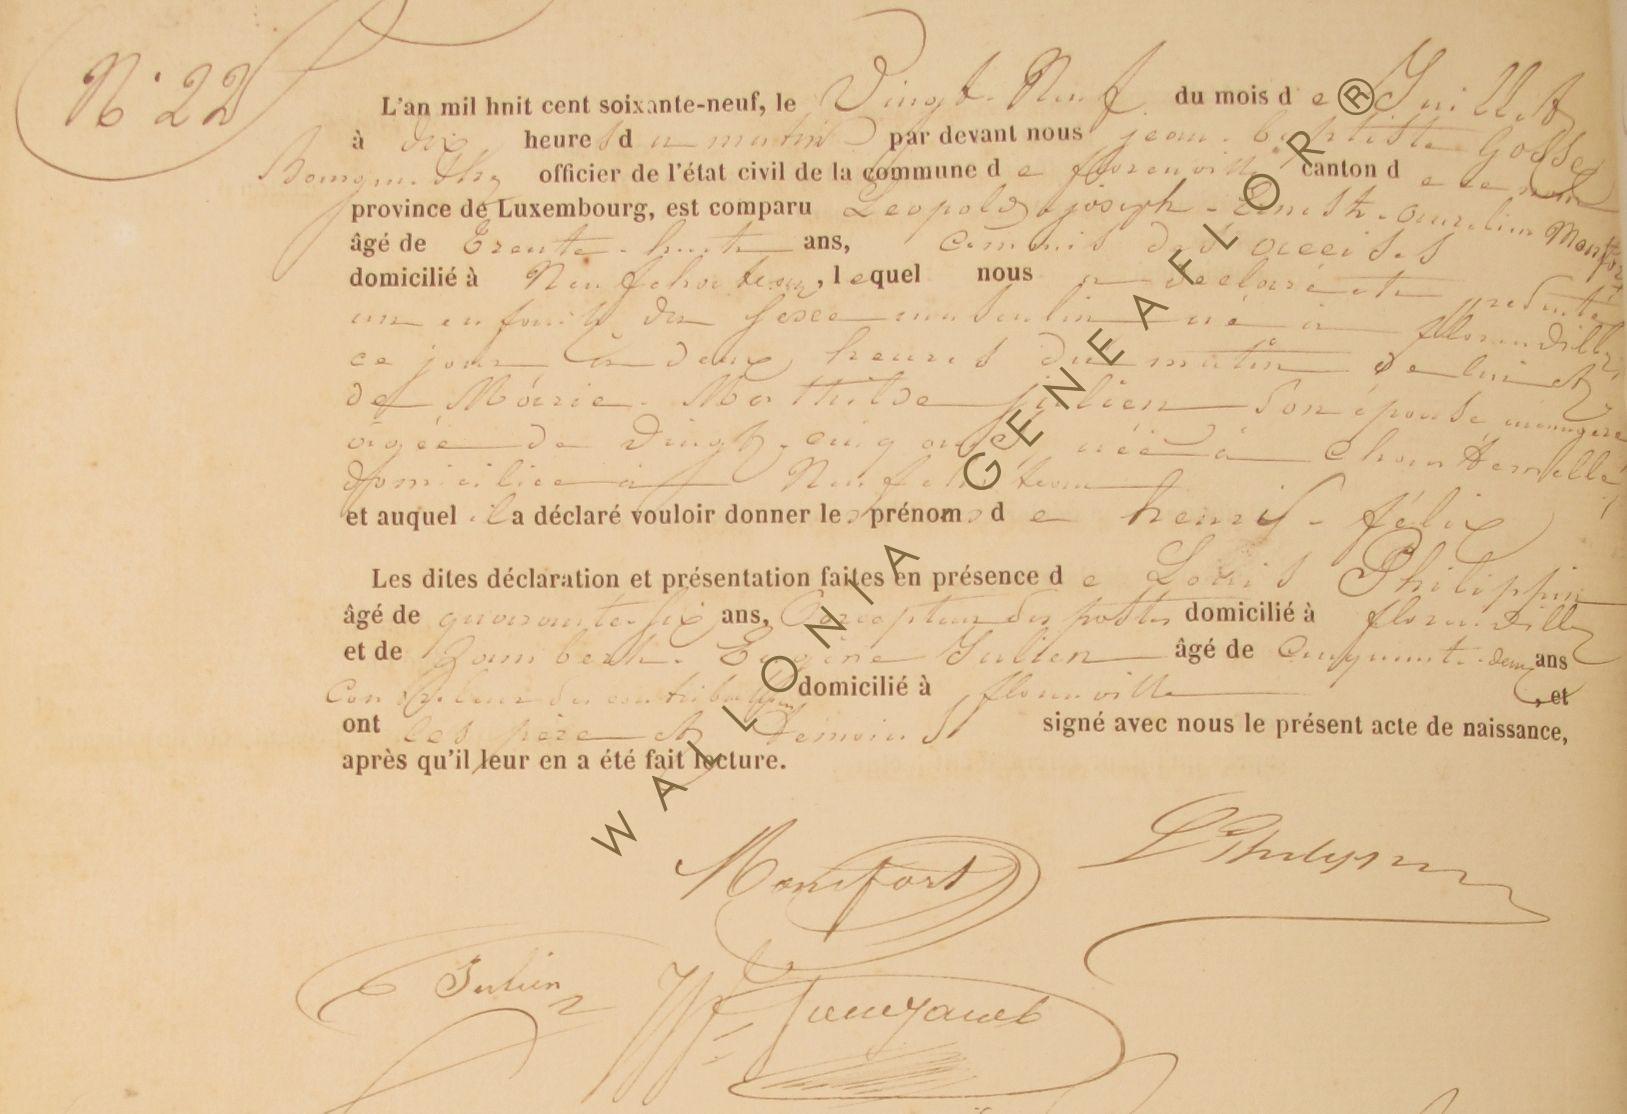 N° 22
L'an mil hnit cent soixante-neuf, le Vingt-Neuf du mois de Juillet
à dix heures du matin par devant nous jean-baptiste Gosse
Bourgmestre officier de l'état civil de la commune de florenville canton de ce nom
province de Luxembourg, est comparu Léopold-joseph-Ernest-aurelien Monfort
âgé de Trente-huit ans, commis des accises
domicilié à Neufchateau, lequel nous a déclaré et présenté
un enfant du sexe masculin né à florenville
ce jour à deux heures du matin de lui et
de Marie-Mathilde julien son épouse ménagère
agée de Vingt-cinq ans née à
domiciliée à Neufchateau
et auquel il a déclaré vouloir donner les prénoms de henri-félix
Les dites déclaration et présentation faites en présence de Louis Philippin
âgé de quarante-six ans, Percepteur des postes domicilié à florenville
et de Lambert-Eugène Julien âgé de Cinquante-deux ans
Controleur des contributions domicilié à florenville, et
ont les père et témoins signé avec nous le présent acte de naissance,
après qu'il leur en a été fait lecture.
Monfort
L Philippin
Julien
WALLONIA GENEAFLOR ®